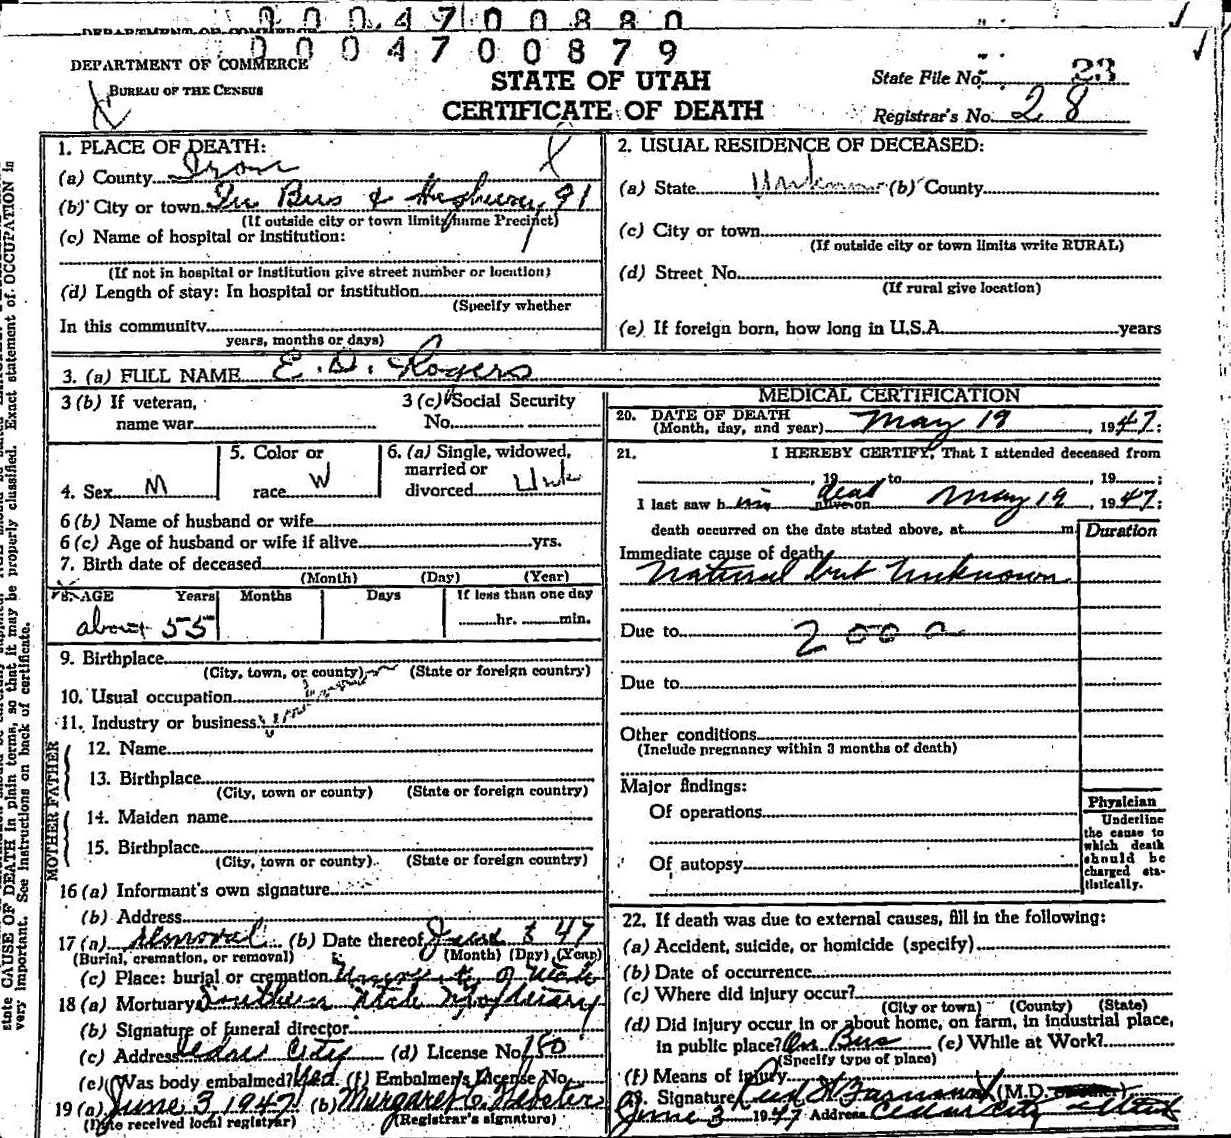 0 0 0 4 7 0 0 8 8 0
DEPARTMENT OF COMMERCE
0 0 0 4 7 0 0 8 7 9
DEPARTMENT OF COMMERCE
BUREAU OF THE CENSUS
STATE OF UTAH
CERTIFICATE OF DEATH
State File No. 23
Registrar's No. 28
1. PLACE OF DEATH:
(a) County Iron
(b) City or town In Bus & Highway 91
(If outside city or town limits name Precinct)
(c) Name of hospital or institution:
(If not in hospital or institution give street number or location)
(d) Length of stay: In hospital or institution
(Specify whether
In this community
years, months or days)
2. USUAL RESIDENCE OF DECEASED:
(a) State Unknown (b) County
(c) City or town
(If outside city or town limits write RURAL)
(d) Street No.
(If rural give location)
(e) If foreign born, how long in U.S.A. years
3. (a) FULL NAME E. D. Rogers
3 (b) If veteran,
name war
3 (c) Social Security
No.
4. Sex M
5. Color or
race W
6. (a) Single, widowed,
married or
divorced Unk
6 (b) Name of husband or wife
6 (c) Age of husband or wife if alive yrs.
7. Birth date of deceased
(Month) (Day) (Year)
8. AGE Years Months Days If less than one day
about 55 hr. min.
9. Birthplace
(City, town, or county) (State or foreign country)
10. Usual occupation
11. Industry or business
FATHER
12. Name
13. Birthplace
(City, town or county) (State or foreign country)
MOTHER
14. Maiden name
15. Birthplace
(City, town or county) (State or foreign country)
16 (a) Informant's own signature
(b) Address
17 (a) Removal (b) Date thereof June 3 47
(Burial, cremation, or removal) (Month) (Day) (Year)
(c) Place: burial or cremation University of Utah
18 (a) Mortuary Southern Utah Mortuary
(b) Signature of funeral director
(c) Address Cedar City (d) License No. 180
(e) Was body embalmed? Yes (f) Embalmer's License No.
19 (a) June 3, 1947 (b) Margaret C.
(Date received local registrar) (Registrar's signature)
MEDICAL CERTIFICATION
20. DATE OF DEATH
(Month, day, and year) May 19, 1947:
21. I HEREBY CERTIFY, That I attended deceased from
, 19 to , 19 ;
I last saw him dead alive on May 19, 1947:
death occurred on the date stated above, at m.
Duration
Immediate cause of death
Natural but Unknown
Due to 200
Due to
Other conditions
(Include pregnancy within 3 months of death)
Major findings:
Of operations
Of autopsy
Physician
Underline
the cause to
which death
should be
charged sta-
tistically.
22. If death was due to external causes, fill in the following:
(a) Accident, suicide, or homicide (specify)
(b) Date of occurrence
(c) Where did injury occur?
(City or town) (County) (State)
(d) Did injury occur in or about home, on farm, in industrial place,
in public place? On Bus (e) While at Work?
(Specify type of place)
(f) Means of injury
23. Signature (M.D.
June 3 1947 Address Cedar City Utah
CAUSE OF DEATH in plain terms, so that it may be properly classified. Exact statement of OCCUPATION is
very important. See instructions on back of certificate.